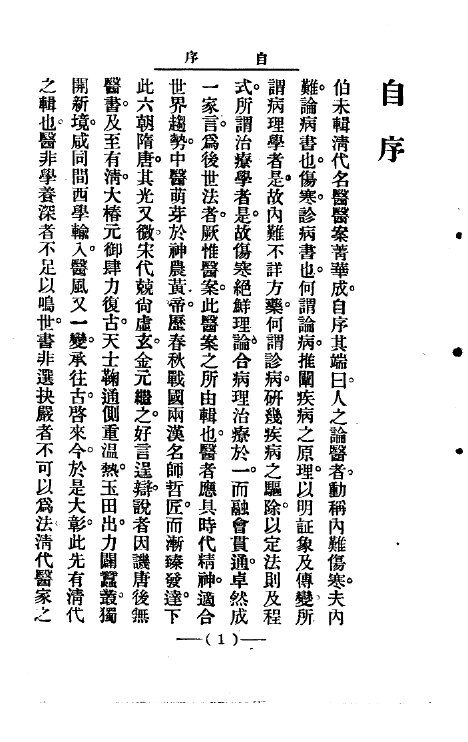 自序
自序
伯未輯清代名醫醫案菁華成。自序其端曰。人之論醫者。動稱內難傷寒。夫內
難。論病書也。傷寒。診病書也。何謂論病。推闡疾病之原理。以明証象及傳變。所
謂病理學者是。故內難不詳方藥。何謂診病。硏幾疾病之驅除。以定法則及程
式。所謂治療學者是。故傷寒絕鮮理論。合病理治療於一。而融會貫通。卓然成
一家言。爲後世法者。厥惟醫案。此醫案之所由輯也。醫者應具時代精神。適合
世界趨勢。中醫萌芽於神農黃帝。歷春秋戰國兩漢名師哲匠。而漸臻發達。下
此六朝隋唐。其光又微。宋代競尙虛玄。金元繼之。好言逞辯。說者因譏唐後無
醫書。及至有清。大椿元御肆力復古。天士鞠通側重溫熱。玉田出力闢蠶叢。獨
開新境。咸同間西學輸入。醫風又一變。承往古。啓來今。於是大彰。此先有清代
之輯也。醫非學養深者不足以鳴世。書非選抉嚴者不可以爲法。清代醫家之
(1)